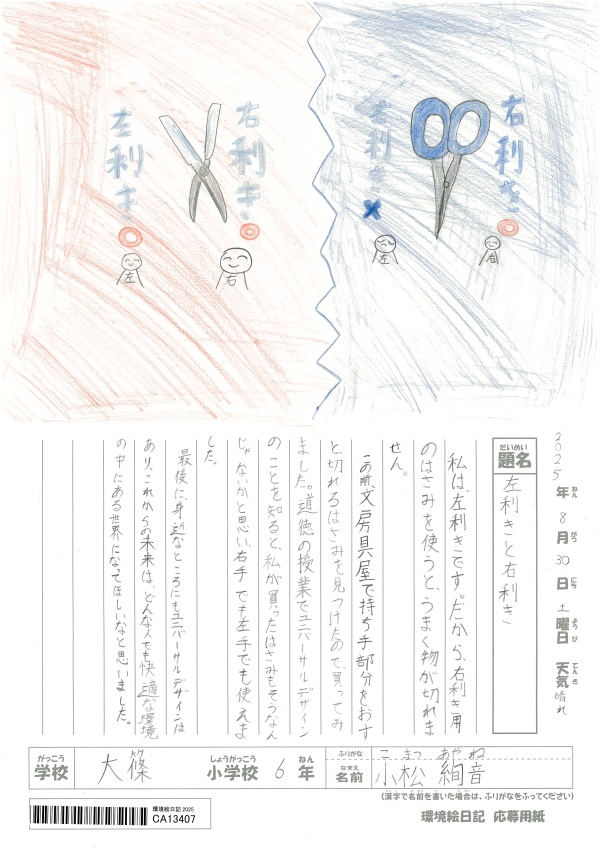 右利き
左利き
左
右
右利き
左利き
左
右
2025年ねん 8月がつ 30日にち 土曜日ようび 天気てんき 晴れ
題名だいめい 左利きと右利き
私は、左利きです。だから、右利き用
のはさみを使うと、うまく物が切れま
せん。
この前、文房具屋で持ち手部分をおす
と、切れるはさみを見つけたので、買ってみ
ました。道徳の授業でユニバーサルデザイン
のことを知ると、私が買ったはさみもそうなん
じゃないかと思い、右手でも左手でも使えま
した。
最後に、身近なところにもユニバーサルデザインは
あり、これからの未来は、どんな人でも快適な環境
の中にある世界になってほしいなと思いました。
学校がっこう 大篠 小学校しょうがっこう 6年ねん
ふりがな こまつ あやね
名前なまえ 小松 絢音
(漢字で名前を書いた場合は、ふりがなをふってください)
環境絵日記 2025
CA13407
環境絵日記 応募用紙